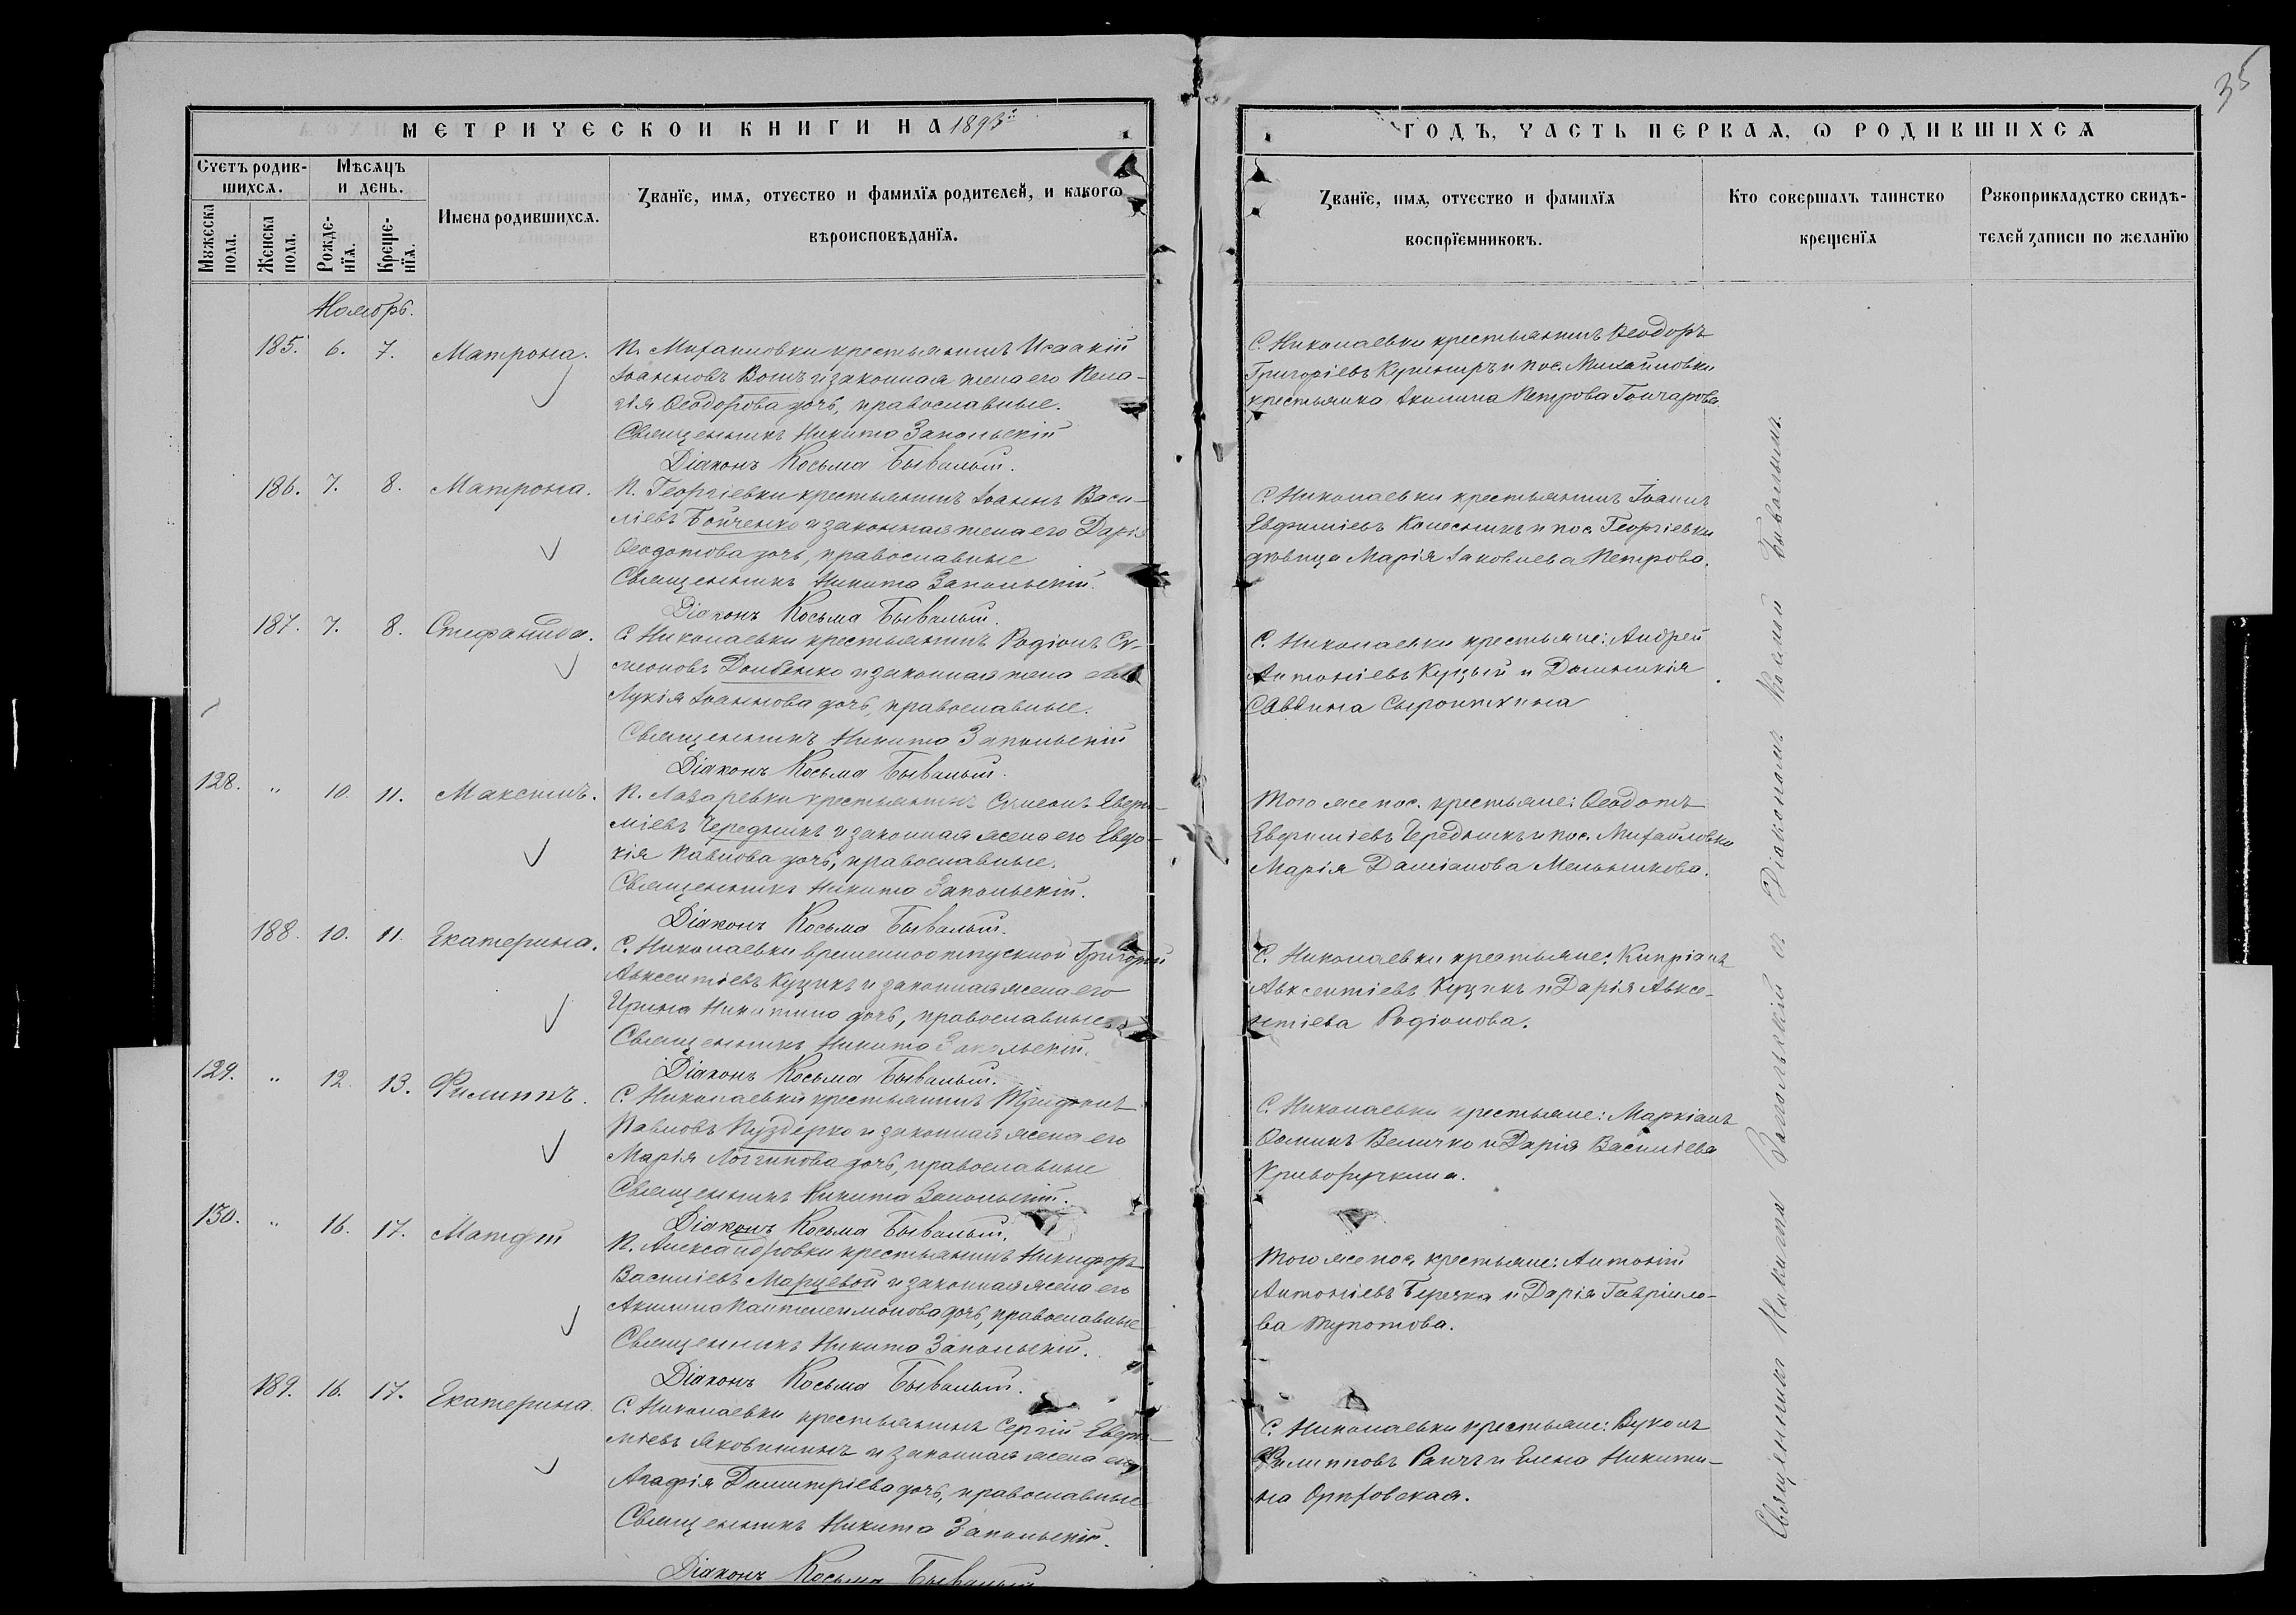 35
МЕТРИЧЕСКОЙ КНИГИ НА 1893й
ГОДЪ, ЧАСТЬ ПЕРВАЯ, Ѡ РОДИВШИХСЯ
Счетъ родив-
шихся.
Мѣсяцъ
и день.
Мꙋжеска
пола.
Женска
пола.
Рожде-
нїя.
Креще-
нїя.
Имена родившихся.
Званїе, имя, отчество и фамилїя родителей, и какогѡ
вѣроисповѣданїя.
Званїе, имя, отчество и фамилїя
воспрїемниковъ.
Кто совершалъ таинство
крещенїя
Рꙋкоприкладство свидѣ-
телей записи по желанїю
Ноябрь.
185. 6. 7. Матрона.
П. Михаиловки крестьянинъ Исаакій
Іоанновъ Вовкъ и законная жена его Пела-
гія Ѳеодорова дочь, православные.
Священникъ Никита Запольскій
Діаконъ Косьма Бывалый.
С. Николаевки крестьянинъ Ѳеодоръ
Григоріевъ Кушниръ и пос. Михаиловки
крестьянка Акилина Петрова Гончарова.
186. 7. 8. Матрона.
П. Георгіевки крестьянинъ Іоаннъ Васи-
ліевъ Бойченко и законная жена его Дарія
Ѳеодотова дочь, православные
Священникъ Никита Запольскій.
Діаконъ Косьма Бывалый.
С. Николаевки крестьянинъ Іоаннъ
Евфиміевъ Колесникъ и пос. Георгіевки
дѣвица Марія Іаковлева Петрова.
187. 7. 8. Стефанида.
С. Николаевки крестьянинъ Родіонъ Си-
меоновъ Довбенко и законная жена его
Лукія Іоаннова дочь, православные.
Священникъ Никита Запольскій
Діаконъ Косьма Бывалый.
С. Николаевки крестьяне: Андрей
Антоніевъ Куцый и Домникія
Саввина Сыроижкина
128. " 10. 11. Максимъ.
П. Лазаревки крестьянинъ Симеонъ Евфи-
міевъ Чередникъ и законная жена его Евдо-
кія Павлова дочь, православные.
Священникъ Никита Запольскій.
Діаконъ Косьма Бывалый.
Того же пос. крестьяне: Ѳеодотъ
Евфиміевъ Чередникъ и пос. Михайловки
Марія Даміанова Мельникова.
188. 10. 11. Екатерина.
С. Николаевки временноотпускной Григорій
Авксентіевъ Куцикъ и законная жена его
Ирина Никитина дочь, православные.
Священникъ Никита Запольскій.
Діаконъ Косьма Бывалый.
С. Николаевки крестьяне: Кипріанъ
Авксентіевъ Куцикъ и Дарія Авксе-
нтіева Родіонова.
129. " 12. 13. Филиппъ.
С. Николаевки крестьянинъ Трифонъ
Павловъ Пуздерко и законная жена его
Марія Логгинова дочь, православные
Священникъ Никита Запольскій.
Діаконъ Косьма Бывалый.
С. Николаевки крестьяне: Маркіанъ
Ѳоминъ Величко и Дарія Василіева
Криворучкина.
130. " 16. 17. Матфій
П. Александровки крестьянинъ Никифоръ
Василіевъ Марцевой и законная жена его
Акилина Пантелеимонова дочь, православные
Священникъ Никита Запольскій.
Діаконъ Косьма Бывалый.
Того же пос. крестьяне: Антоній
Антоніевъ Беречка и Дарія Гавріило-
ва Тупотова.
189. 16. 17. Екатерина.
С. Николаевки крестьянинъ Сергій Евфи-
міевъ Яковишинъ и законная жена его
Агафія Димитріева дочь, православные
Священникъ Никита Запольскій.
Діаконъ Косьма Бывалый
С. Николаевки крестьяне: Вуколъ
Филипповъ Раичъ и Елена Никити-
на Орѣховская.
Священникъ Никита Запольскій съ Діакономъ Космой Бывалымъ.